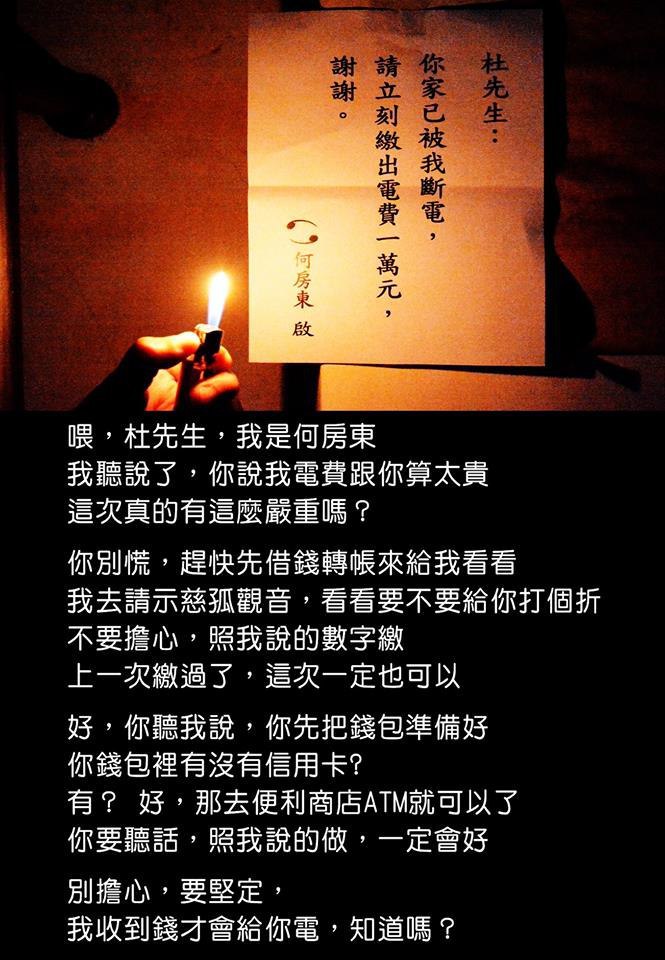 杜先生：
你家已被我斷電，
請立刻繳出電費一萬元，
謝謝。
何房東 啟
喂，杜先生，我是何房東
我聽說了，你說我電費跟你算太貴
這次真的有這麼嚴重嗎？
你別慌，趕快先借錢轉帳來給我看看
我去請示慈孤觀音，看看要不要給你打個折
不要擔心，照我說的數字繳
上一次繳過了，這次一定也可以
好，你聽我說，你先把錢包準備好
你錢包裡有沒有信用卡?
有？ 好，那去便利商店ATM就可以了
你要聽話，照我說的做，一定會好
別擔心，要堅定，
我收到錢才會給你電，知道嗎？